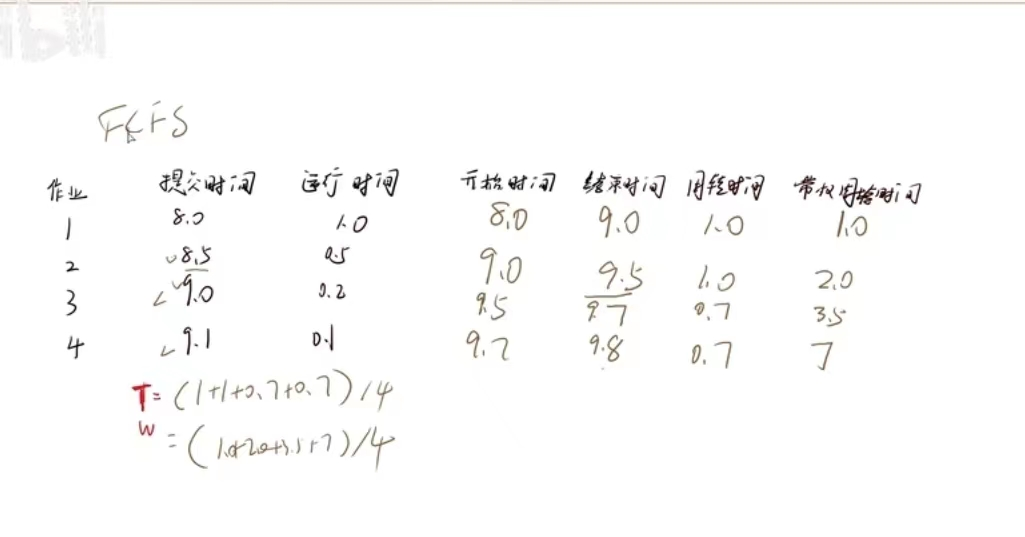 FCFS
作业 提交时间 运行时间 开始时间 结束时间 周转时间 带权周转时间
1 8.0 1.0 8.0 9.0 1.0 1.0
2 8.5 0.5 9.0 9.5 1.0 2.0
3 9.0 0.2 9.5 9.7 0.7 3.5
4 9.1 0.1 9.7 9.8 0.7 7
T = (1+1+0.7+0.7)/4
W = (1.0+2.0+3.5+7)/4